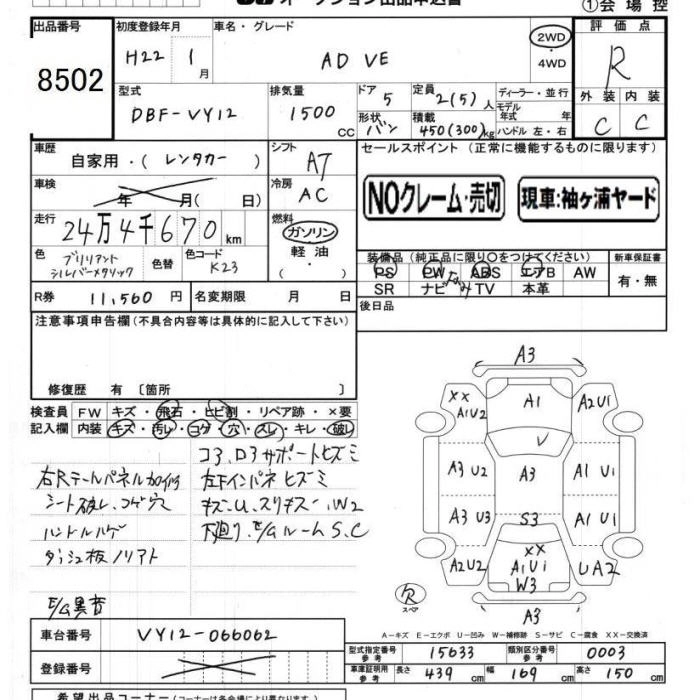 ①会場控
出品番号
8502
初度登録年月
H22 1月
車名・グレード
AD VE
2WD
・
4WD
評価点
R
外装 内装
C C
型式
DBF-VY12
排気量
1500 CC
ドア
5
形状
バン
定員
2(5)人
積載
450(300)kg
ディーラー・並行
モデル
年式 年
ハンドル 左・右
車歴
自家用・(レンタカー)
シフト
AT
車検
年 月( 日)
冷房
AC
走行
24万4千670km
燃料
ガソリン
軽油
・
色
ブリリアント
シルバーメタリック
色替
色コード
K23
R券 11,560円
名変期限 月 日
セールスポイント(正常に機能するものに限ります)
NOクレーム・売切
現車:袖ヶ浦ヤード
装備品(純正品に限り○をつけてください)
PS PW ABS エアB AW
SR ナビ TV 本革
新車保証書
有・無
後日品
注意事項申告欄(不具合内容等は具体的に記入して下さい)
修復歴 有〔箇所 〕
検査員
記入欄
FW キズ・飛石・ヒビ割・リペア跡・×要
内装 キズ・汚レ・コゲ・穴・スレ・キレ・破レ
コ3、ロ3サポートヒズミ
左下インパネヒズミ
キズ-U、スリキズ-、W2
下廻り、E/GルームS.C
シート破レ、コゲ穴
ハンドルハゲ
ダッシュ板ノリアト
E/G異音
A3
XX
A1U2
A1
A2U1
V
A3 U2
A3
A1 U1
A3 U3
S3
A1 U1
A2U2
XX
A1U1
W3
UA2
A3
R
スペア
A-キズ E-エクボ U-凹み W-補修跡 S-サビ C-腐食 XX-交換済
車台番号
VY12-066062
登録番号
型式指定番号
参考
15633
類別区分番号
参考
0003
車庫証明用
参考
長さ 439 cm 幅 169 cm 高さ 150 cm
希望出品コーナー(コーナーは各会場により異なります)